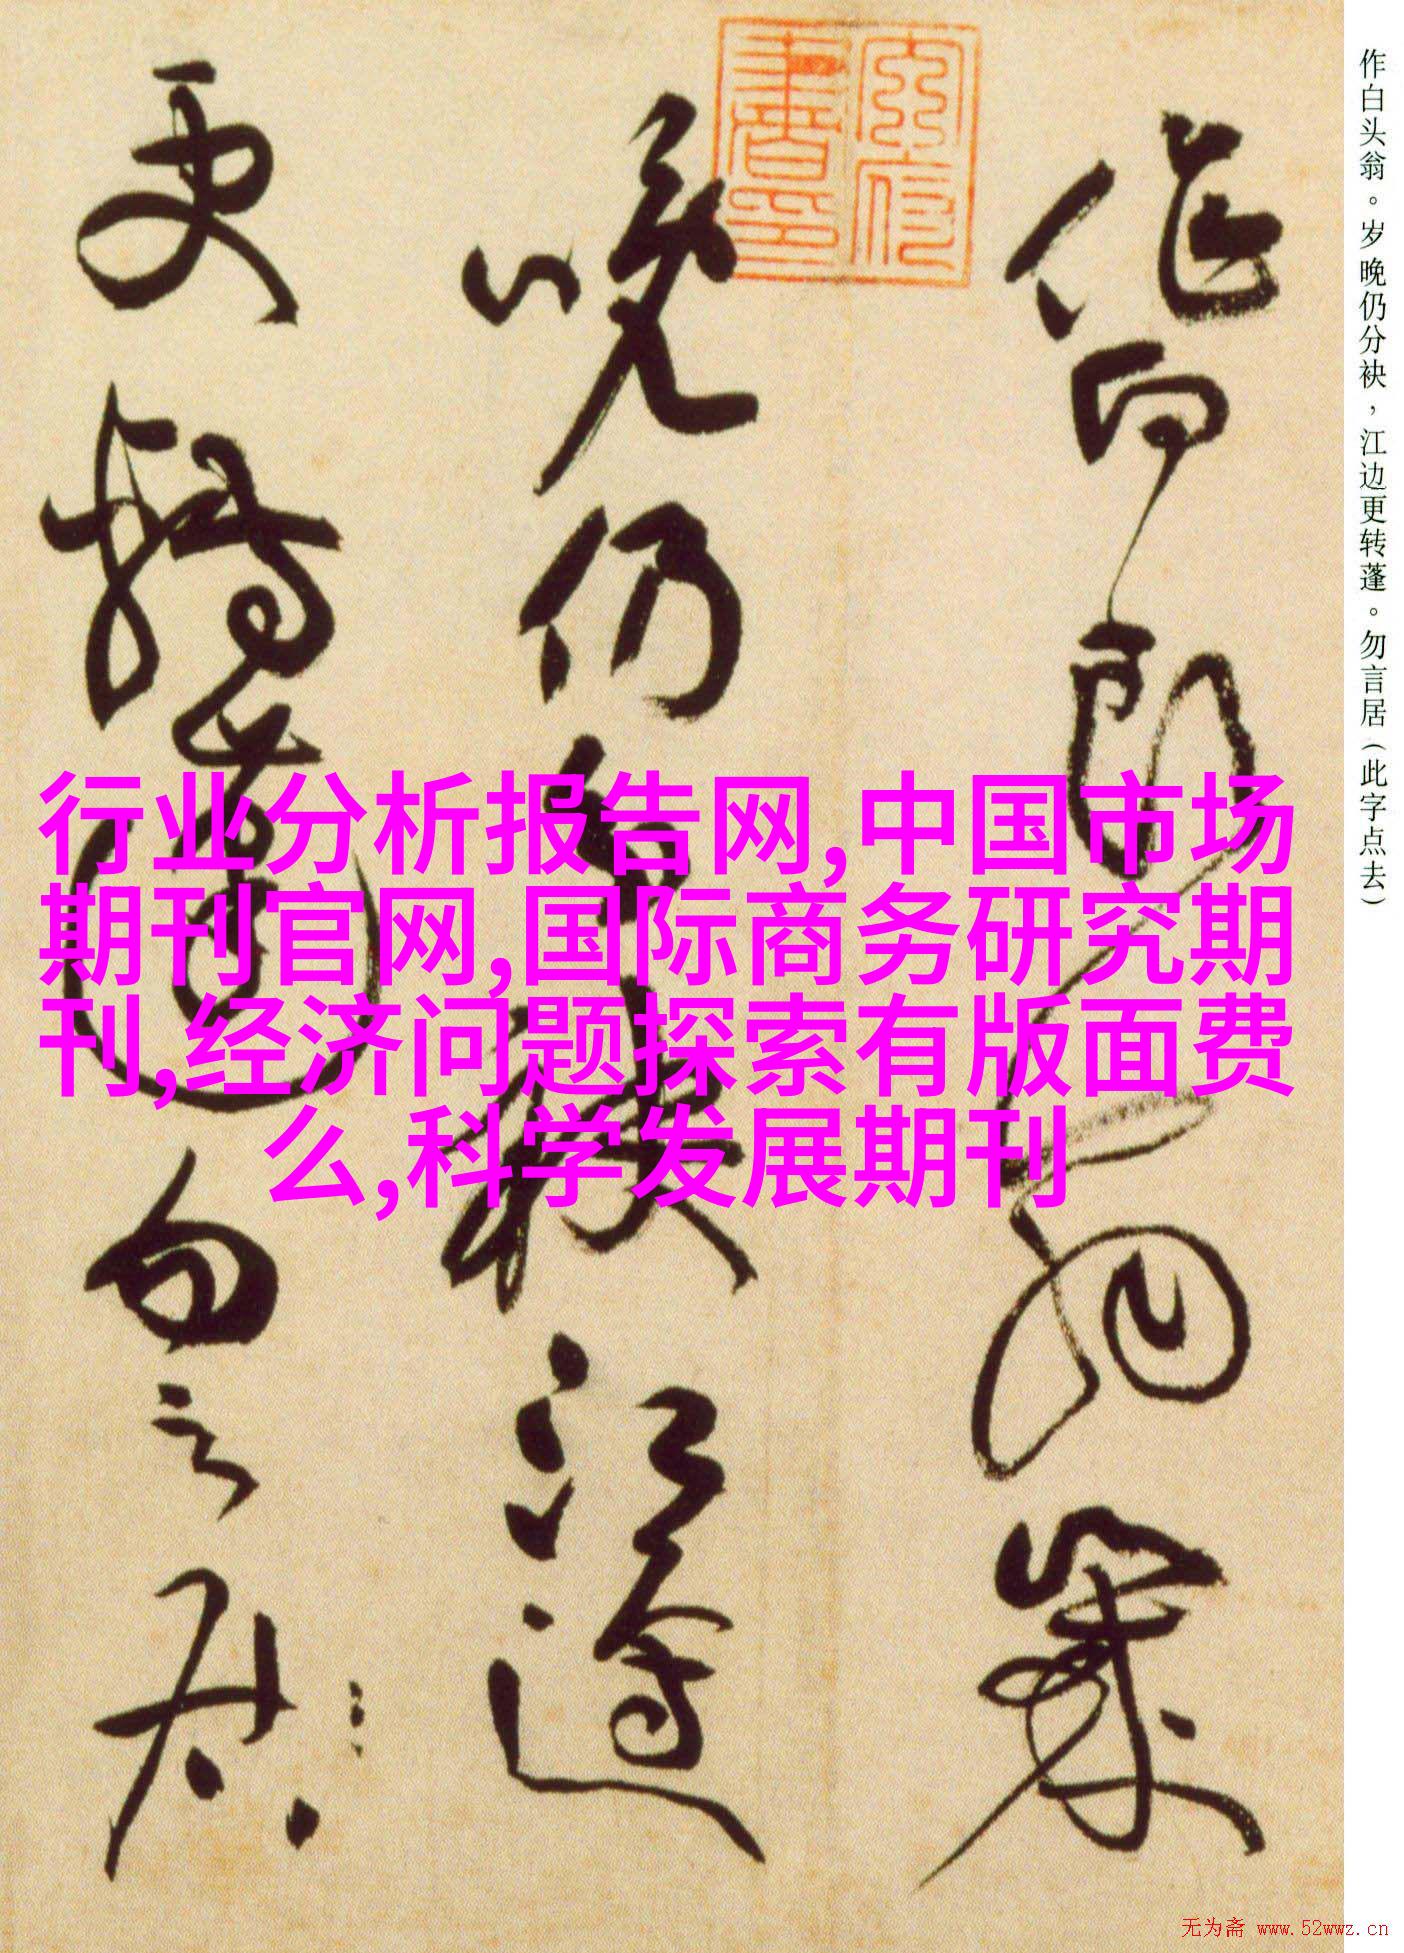 作白头翁。岁晚仍分袂，江边更转蓬。勿言居（此字点去）
作白头翁岁
晚仍分袂江边
更转蓬勿言居
行业分析报告网,中国市场
期刊官网,国际商务研究期
刊,经济问题探索有版面费
么,科学发展期刊
无为斋 www.52wwz.cn